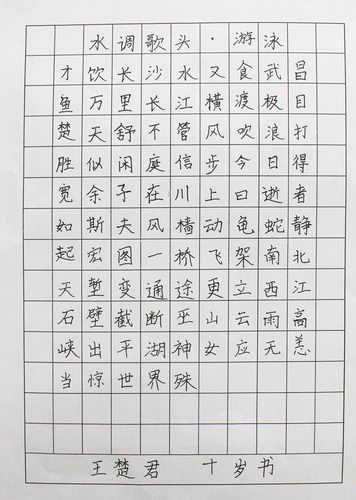 水调歌头·游泳
才饮长沙水又食武昌
鱼万里长江横渡极目
楚天舒不管风吹浪打
胜似闲庭信步今日得
宽余子在川上曰逝者
如斯夫风樯动龟蛇静
起宏图一桥飞架南北
天堑变通途更立西江
石壁截断巫山云雨高
峡出平湖神女应无恙
当惊世界殊
王楚君 十岁书